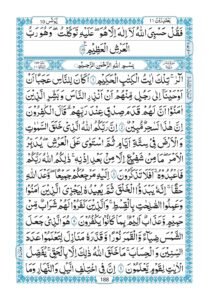 يونس ١٠
يعتذرون ١١
فَقُلْ حَسْبِيَ اللّٰهُ لَا اِلٰهَ اِلَّا هُوَ عَلَيْهِ تَوَكَّلْتُ وَهُوَ رَبُّ
الْعَرْشِ الْعَظِيْمِ
بِسْمِ اللّٰهِ الرَّحْمٰنِ الرَّحِيْمِ
الٓرٰ تِلْكَ اٰيٰتُ الْكِتٰبِ الْحَكِيْمِ اَكَانَ لِلنَّاسِ عَجَبًا اَنْ
اَوْحَيْنَا اِلٰى رَجُلٍ مِّنْهُمْ اَنْ اَنْذِرِ النَّاسَ وَبَشِّرِ الَّذِيْنَ
اٰمَنُوْا اَنَّ لَهُمْ قَدَمَ صِدْقٍ عِنْدَ رَبِّهِمْ قَالَ الْكٰفِرُوْنَ
اِنَّ هٰذَا لَسٰحِرٌ مُّبِيْنٌ اِنَّ رَبَّكُمُ اللّٰهُ الَّذِيْ خَلَقَ السَّمٰوٰتِ
وَالْاَرْضَ فِيْ سِتَّةِ اَيَّامٍ ثُمَّ اسْتَوٰى عَلَى الْعَرْشِ يُدَبِّرُ
الْاَمْرَ مَا مِنْ شَفِيْعٍ اِلَّا مِنْ بَعْدِ اِذْنِهٖ ذٰلِكُمُ اللّٰهُ رَبُّكُمْ
فَاعْبُدُوْهُ اَفَلَا تَذَكَّرُوْنَ اِلَيْهِ مَرْجِعُكُمْ جَمِيْعًا وَعْدَ اللّٰهِ
حَقًّا اِنَّهٗ يَبْدَؤُا الْخَلْقَ ثُمَّ يُعِيْدُهٗ لِيَجْزِيَ الَّذِيْنَ اٰمَنُوْا
وَعَمِلُوا الصّٰلِحٰتِ بِالْقِسْطِ وَالَّذِيْنَ كَفَرُوْا لَهُمْ شَرَابٌ مِّنْ
حَمِيْمٍ وَّعَذَابٌ اَلِيْمٌ بِمَا كَانُوْا يَكْفُرُوْنَ هُوَ الَّذِيْ جَعَلَ
الشَّمْسَ ضِيَآءً وَّالْقَمَرَ نُوْرًا وَّقَدَّرَهٗ مَنَازِلَ لِتَعْلَمُوْا عَدَدَ
السِّنِيْنَ وَالْحِسَابَ مَا خَلَقَ اللّٰهُ ذٰلِكَ اِلَّا بِالْحَقِّ يُفَصِّلُ
الْاٰيٰتِ لِقَوْمٍ يَّعْلَمُوْنَ اِنَّ فِي اخْتِلَافِ الَّيْلِ وَالنَّهَارِ وَمَا
188